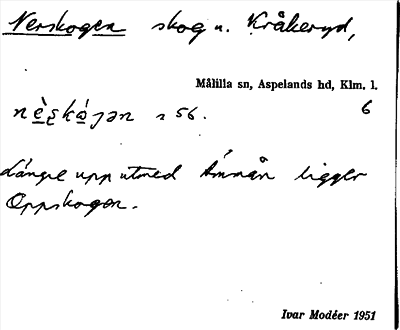 Nerskogen skog u. Kråkeryd,
Målilla sn, Aspelands hd, Klm. l.
6
nè̱ʂkǻ̱ɡən s 56.
Längre upp utmed Åmnån ligger
Oppskogen.
Ivar Modéer 1951